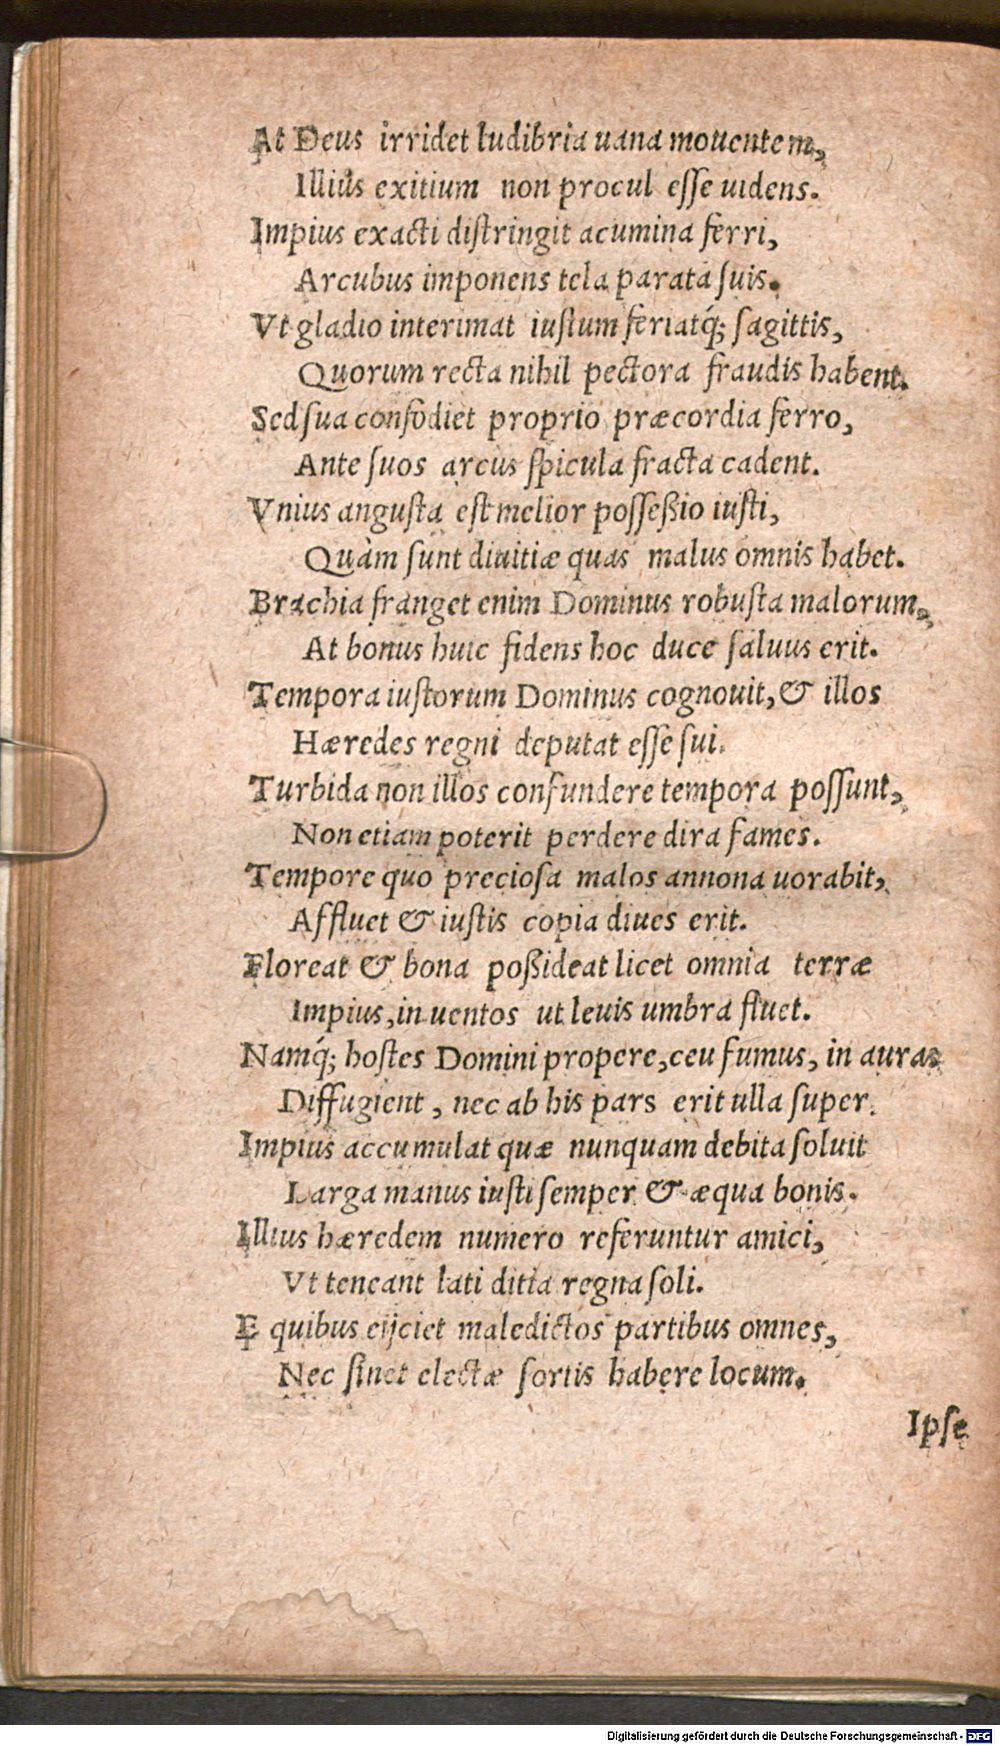 At Deus irridet ludibria uana mouentem,
Illius exitium non procul eſſe uidens.
Impius exacti diſtringit acumina ferri,
Arcubus imponens tela parata ſuis.
Vt gladio interimat iuſtum feriatq́; ſagittis,
Quorum recta nihil pectora fraudis habent.
Sed ſua confodiet proprio præcordia ferro,
Ante ſuos arcus ſpicula fracta cadent.
Vnius anguſta eſt melior poſſeßio iuſti,
Quàm ſunt diuitiæ quas malus omnis habet.
Brachia franget enim Dominus robuſta malorum,
At bonus huic fidens hoc duce ſaluus erit.
Tempora iuſtorum Dominus cognouit, & illos
Hæredes regni deputat eſſe ſui.
Turbida non illos confundere tempora poſſunt,
Non etiam poterit perdere dira fames.
Tempore quo precioſa malos annona uorabit,
Affluet & iuſtis copia diues erit.
Floreat & bona poßideat licet omnia terræ
Impius, in uentos ut leuis umbra fluet.
Namq́; hoſtes Domini propere, ceu fumus, in auras
Diffugient, nec ab his pars erit ulla ſuper.
Impius accumulat quæ nunquam debita ſoluit
Larga manus iuſti ſemper & æqua bonis.
Illius hæredem numero referuntur amici,
Vt teneant lati ditia regna ſoli.
E quibus eijciet maledictos partibus omnes,
Nec ſinet electæ ſortis habere locum.
Ipſe
Digitalisierung gefördert durch die Deutsche Forschungsgemeinschaft - DFG